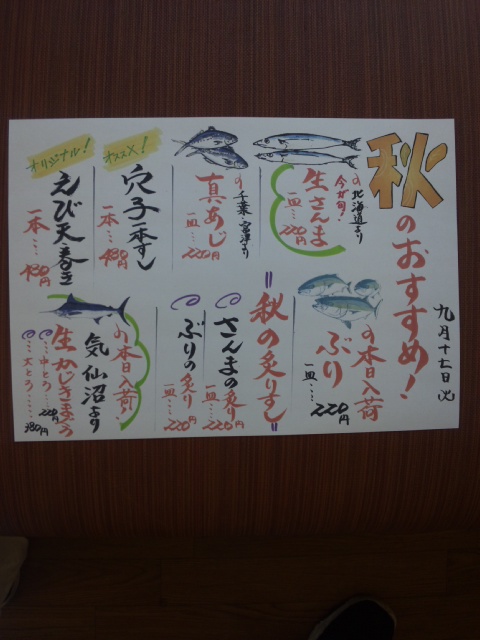 秋のおすすめ!
九月十七日(火)
北海道より
今が旬!
生さんま
一皿…220円
千葉富津より
真あじ
一皿…220円
オススメ!
穴子一本すし
一本…480円
オリジナル!
えび天巻き
一本…480円
本日入荷
ぶり
一皿…220円
秋の炙りすし
さんまの炙り
一皿…220円
ぶりの炙り
一皿…220円
本日入荷!
気仙沼より
生かじきまぐろ
…中とろ…220円
…大とろ…380円